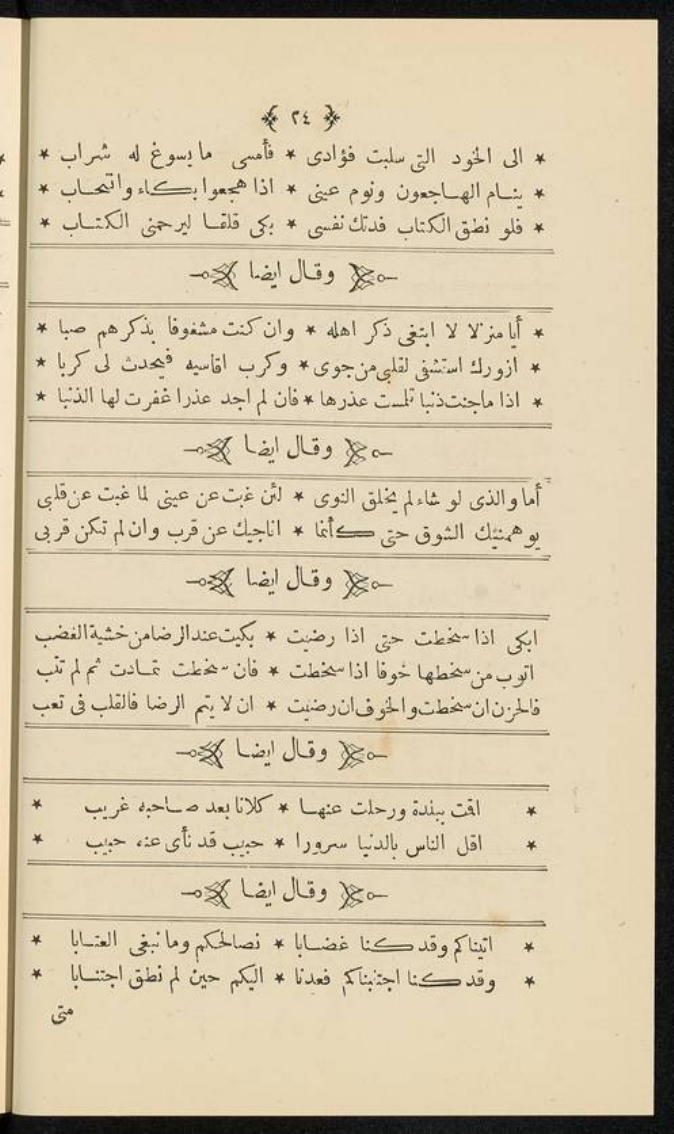 ﴿ ٢٤ ﴾
* الى الخود التى سلبت فؤادى * فأمسى ما يسوغ له شراب *
* ينام الهاجعون ونوم عينى * اذا هجعوا بكاء وانتحاب *
* فلو نطق الكتاب فدتك نفسى * بكى قلقا ليرحمنى الكتاب *
وقال ايضا
* أيا منزلا لا ابتغى ذكر اهله * وان كنت مشغوفا بذكرهم صبا *
* ازورك استشفى لقلبى من جوى * وكرب اقاسيه فيحدث لى كربا *
* اذا ما جنت ذنبا تلمست عذرها * فان لم اجد عذرا غفرت لها الذنبا *
وقال ايضا
أما والذى لو شاء لم يخلق النوى * لئن غبت عن عينى لما غبت عن قلبى
يوهمنيك الشوق حتى كأنما * اناجيك عن قرب وان لم تكن قربى
وقال ايضا
ابكى اذا سخطت حتى اذا رضيت * بكيت عند الرضا من خشية الغضب
اتوب من سخطها خوفا اذا سخطت * فان سخطت تمادت ثم لم تتب
فالحزن ان سخطت والخوف ان رضيت * ان لا يتم الرضا فالقلب فى تعب
وقال ايضا
* اقت ببلدة ورحلت عنها * كلانا بعد صاحبه غريب *
* اقل الناس بالدنيا سرورا * حبيب قد نأى عنه حبيب *
وقال ايضا
* اتيناكم وقد كنا غضابا * نصالحكم وما نبغى العتابا *
* وقد كنا اجتنبناكم فعدنا * اليكم حين لم نطق اجتنابا *
متى